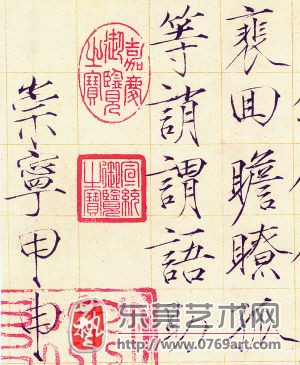 裵回瞻眺孤
等誚謂語助
嘉慶御覽之寶
宣統御覽之寶
崇寧甲申
东莞艺术网
www.0769art.com